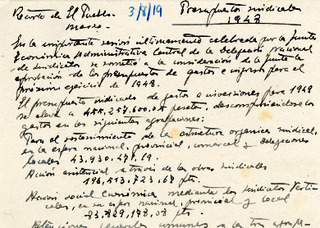 Recorte de El Pueblo. 3/8/19 Presupuestos sindicales
marzo 1948
En la importante sesión últimamente celebrada por la Junta
Económica Administrativa Central de la Delegación nacional
de sindicatos, se sometió a la consideración de la Junta la
aprobación de los presupuestos de gastos e ingresos para el
próximo ejercicio de 1948.
El presupuesto sindicado de gastos e inversiones para 1948
se eleva a pesetas, descomponiéndose los
gastos en los siguientes grupos:
Para el sostenimiento de la estructura orgánica sindical,
en la esfera nacional, provincial, comarcal y delegaciones
locales 43.930.471,19.
Acción asistencial a través de las obras sindicales
196.513.723,68 pts.
Acción social económica mediante los sindicatos verti-
cales, en su esfera nacional, provincial y local
pts.
generales comunes a la